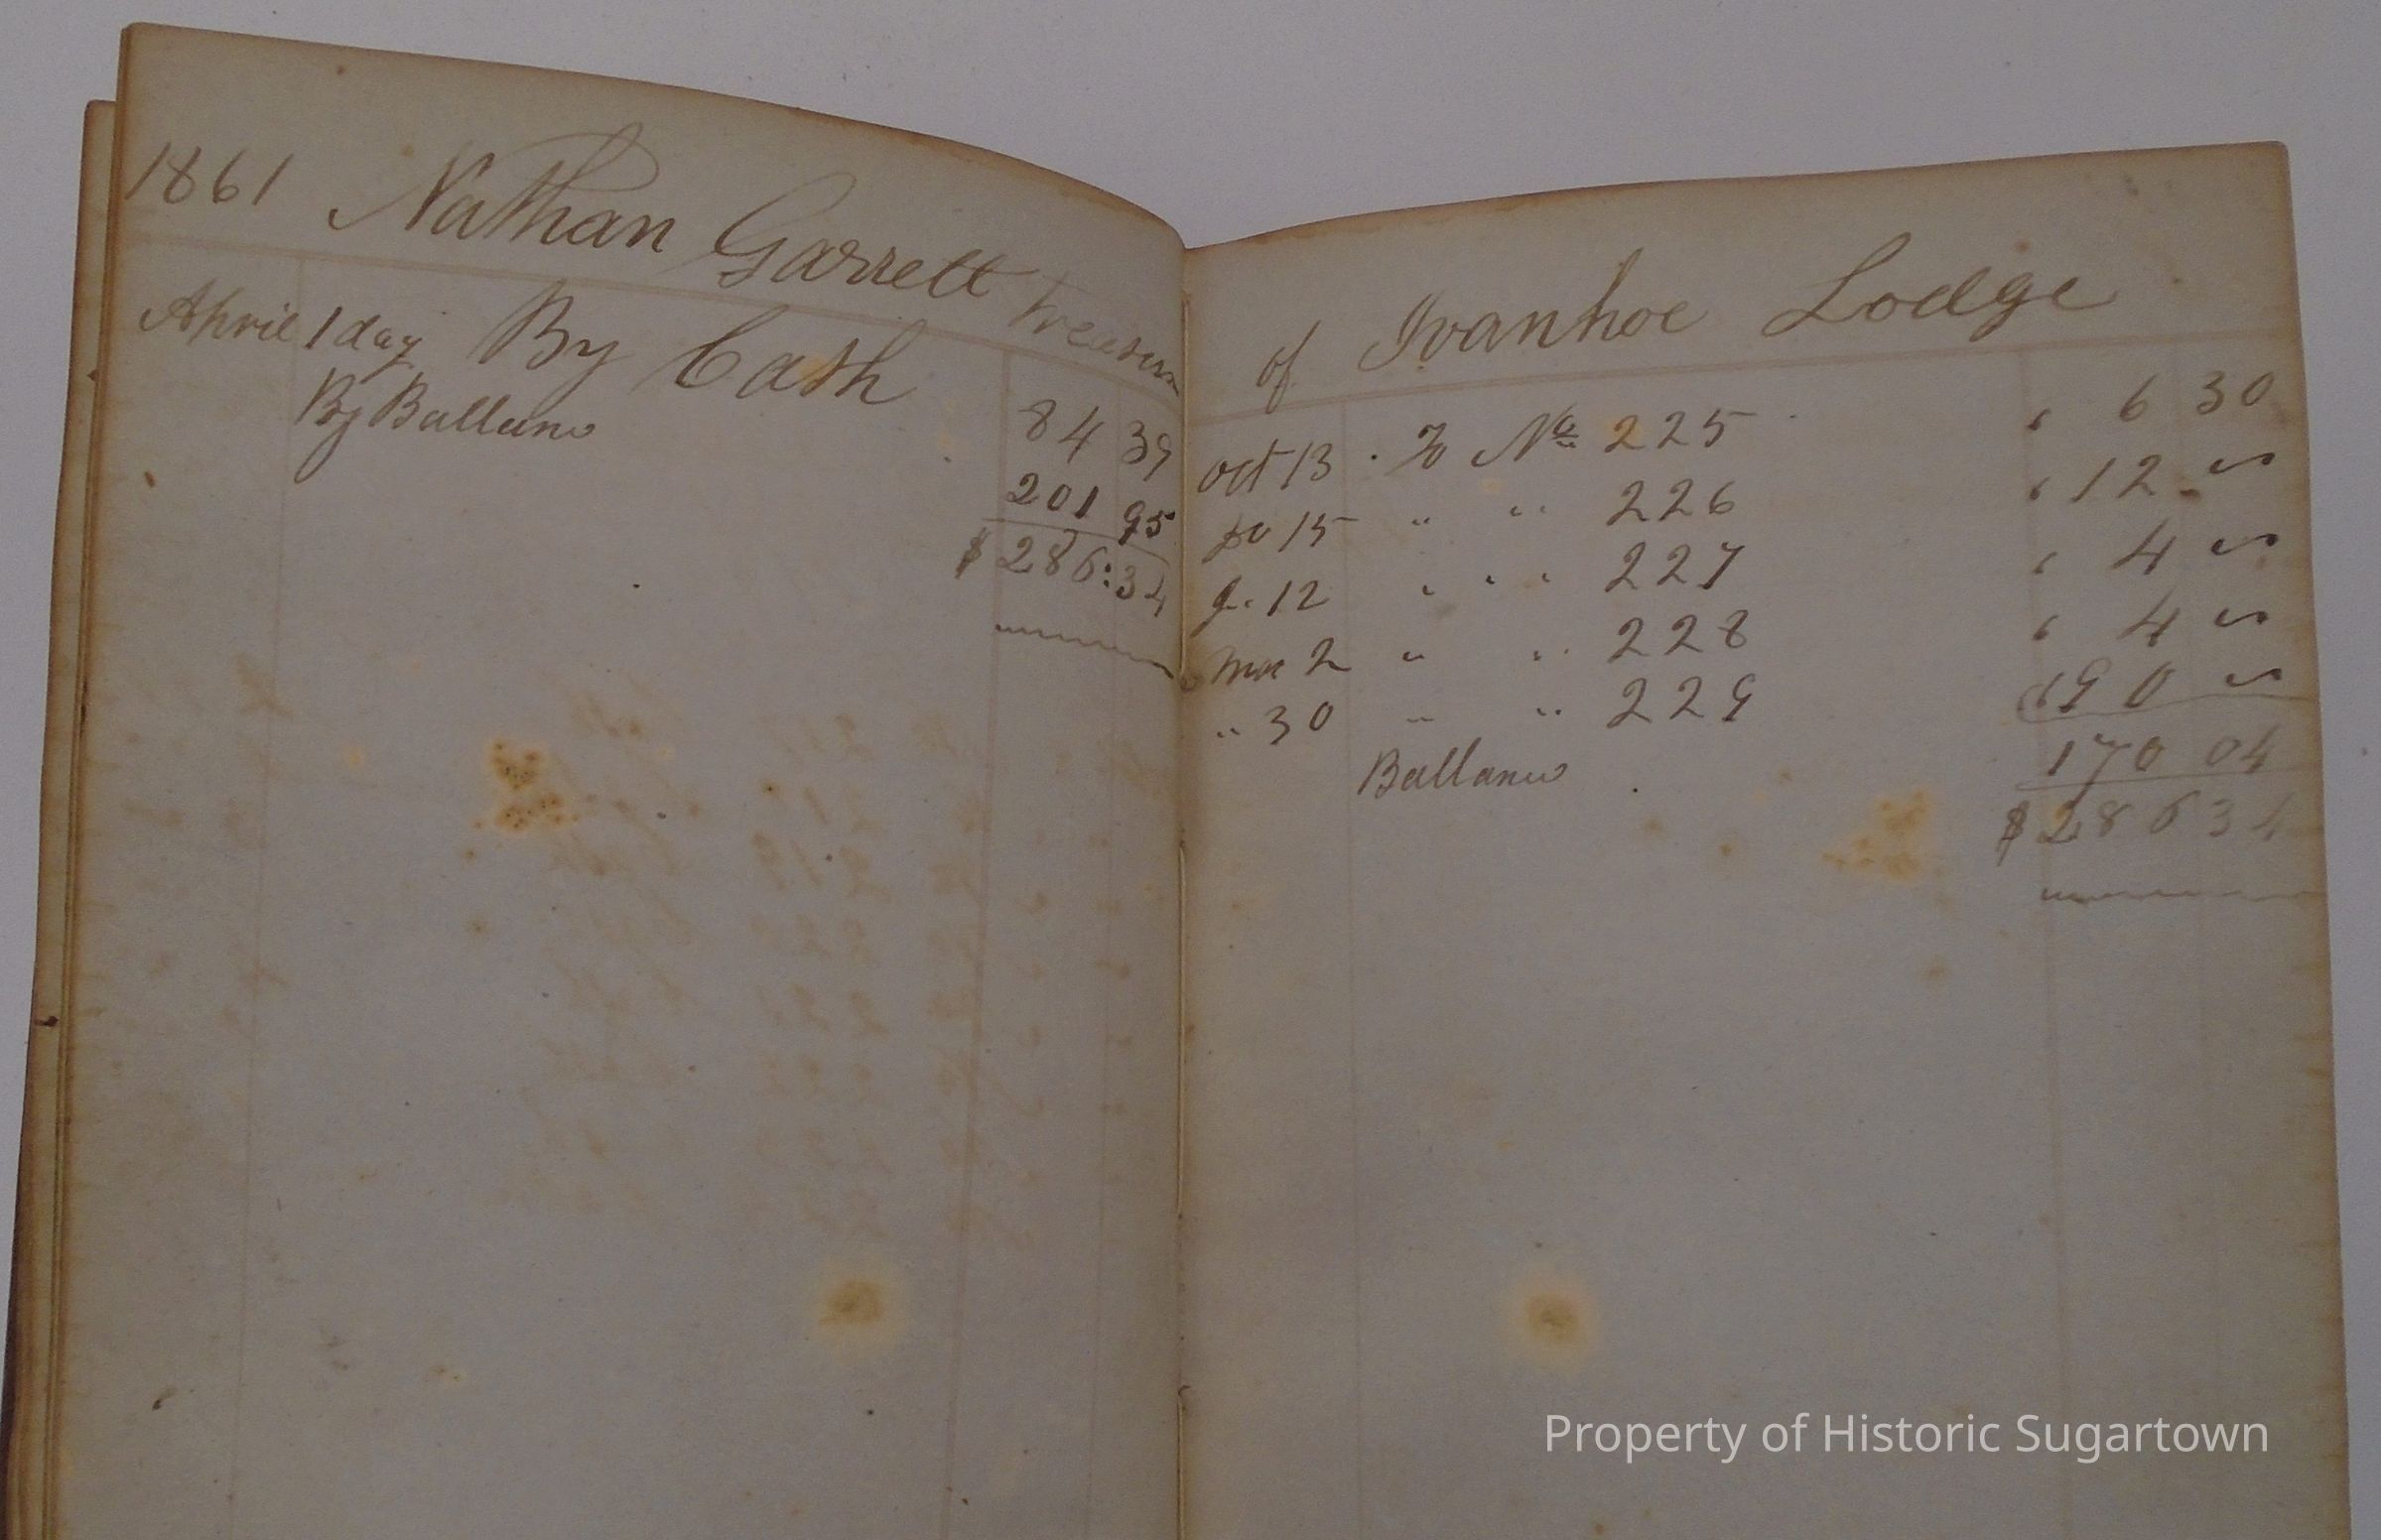 1861 Nathan Garrett Treasurer
April 1 day By Cash 84 39
By Ballanc 201 95
$ 286:34
of Ivanhoe Lodge
Oct 13 . To No 225 " 6 30
Do 15 " " 226 " 12 "
J. 12 " " " 227 " 4 "
Mar 2 " " 228 " 4 "
" 30 " " 229 " 90 "
Ballanc 170 04
$ 286 34
Property of Historic Sugartown